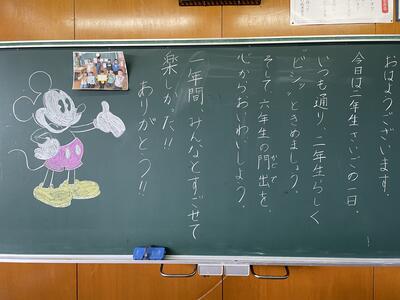 おはようございます。
今日は二年生さいごの一日。
いつも通り、二年生らしく
ビシッときめましょう。
そして、六年生の門出を、
かどで
心からおいわいしよう。
一年間、みんなとすごせて
楽しかった!!
ありがとう!!